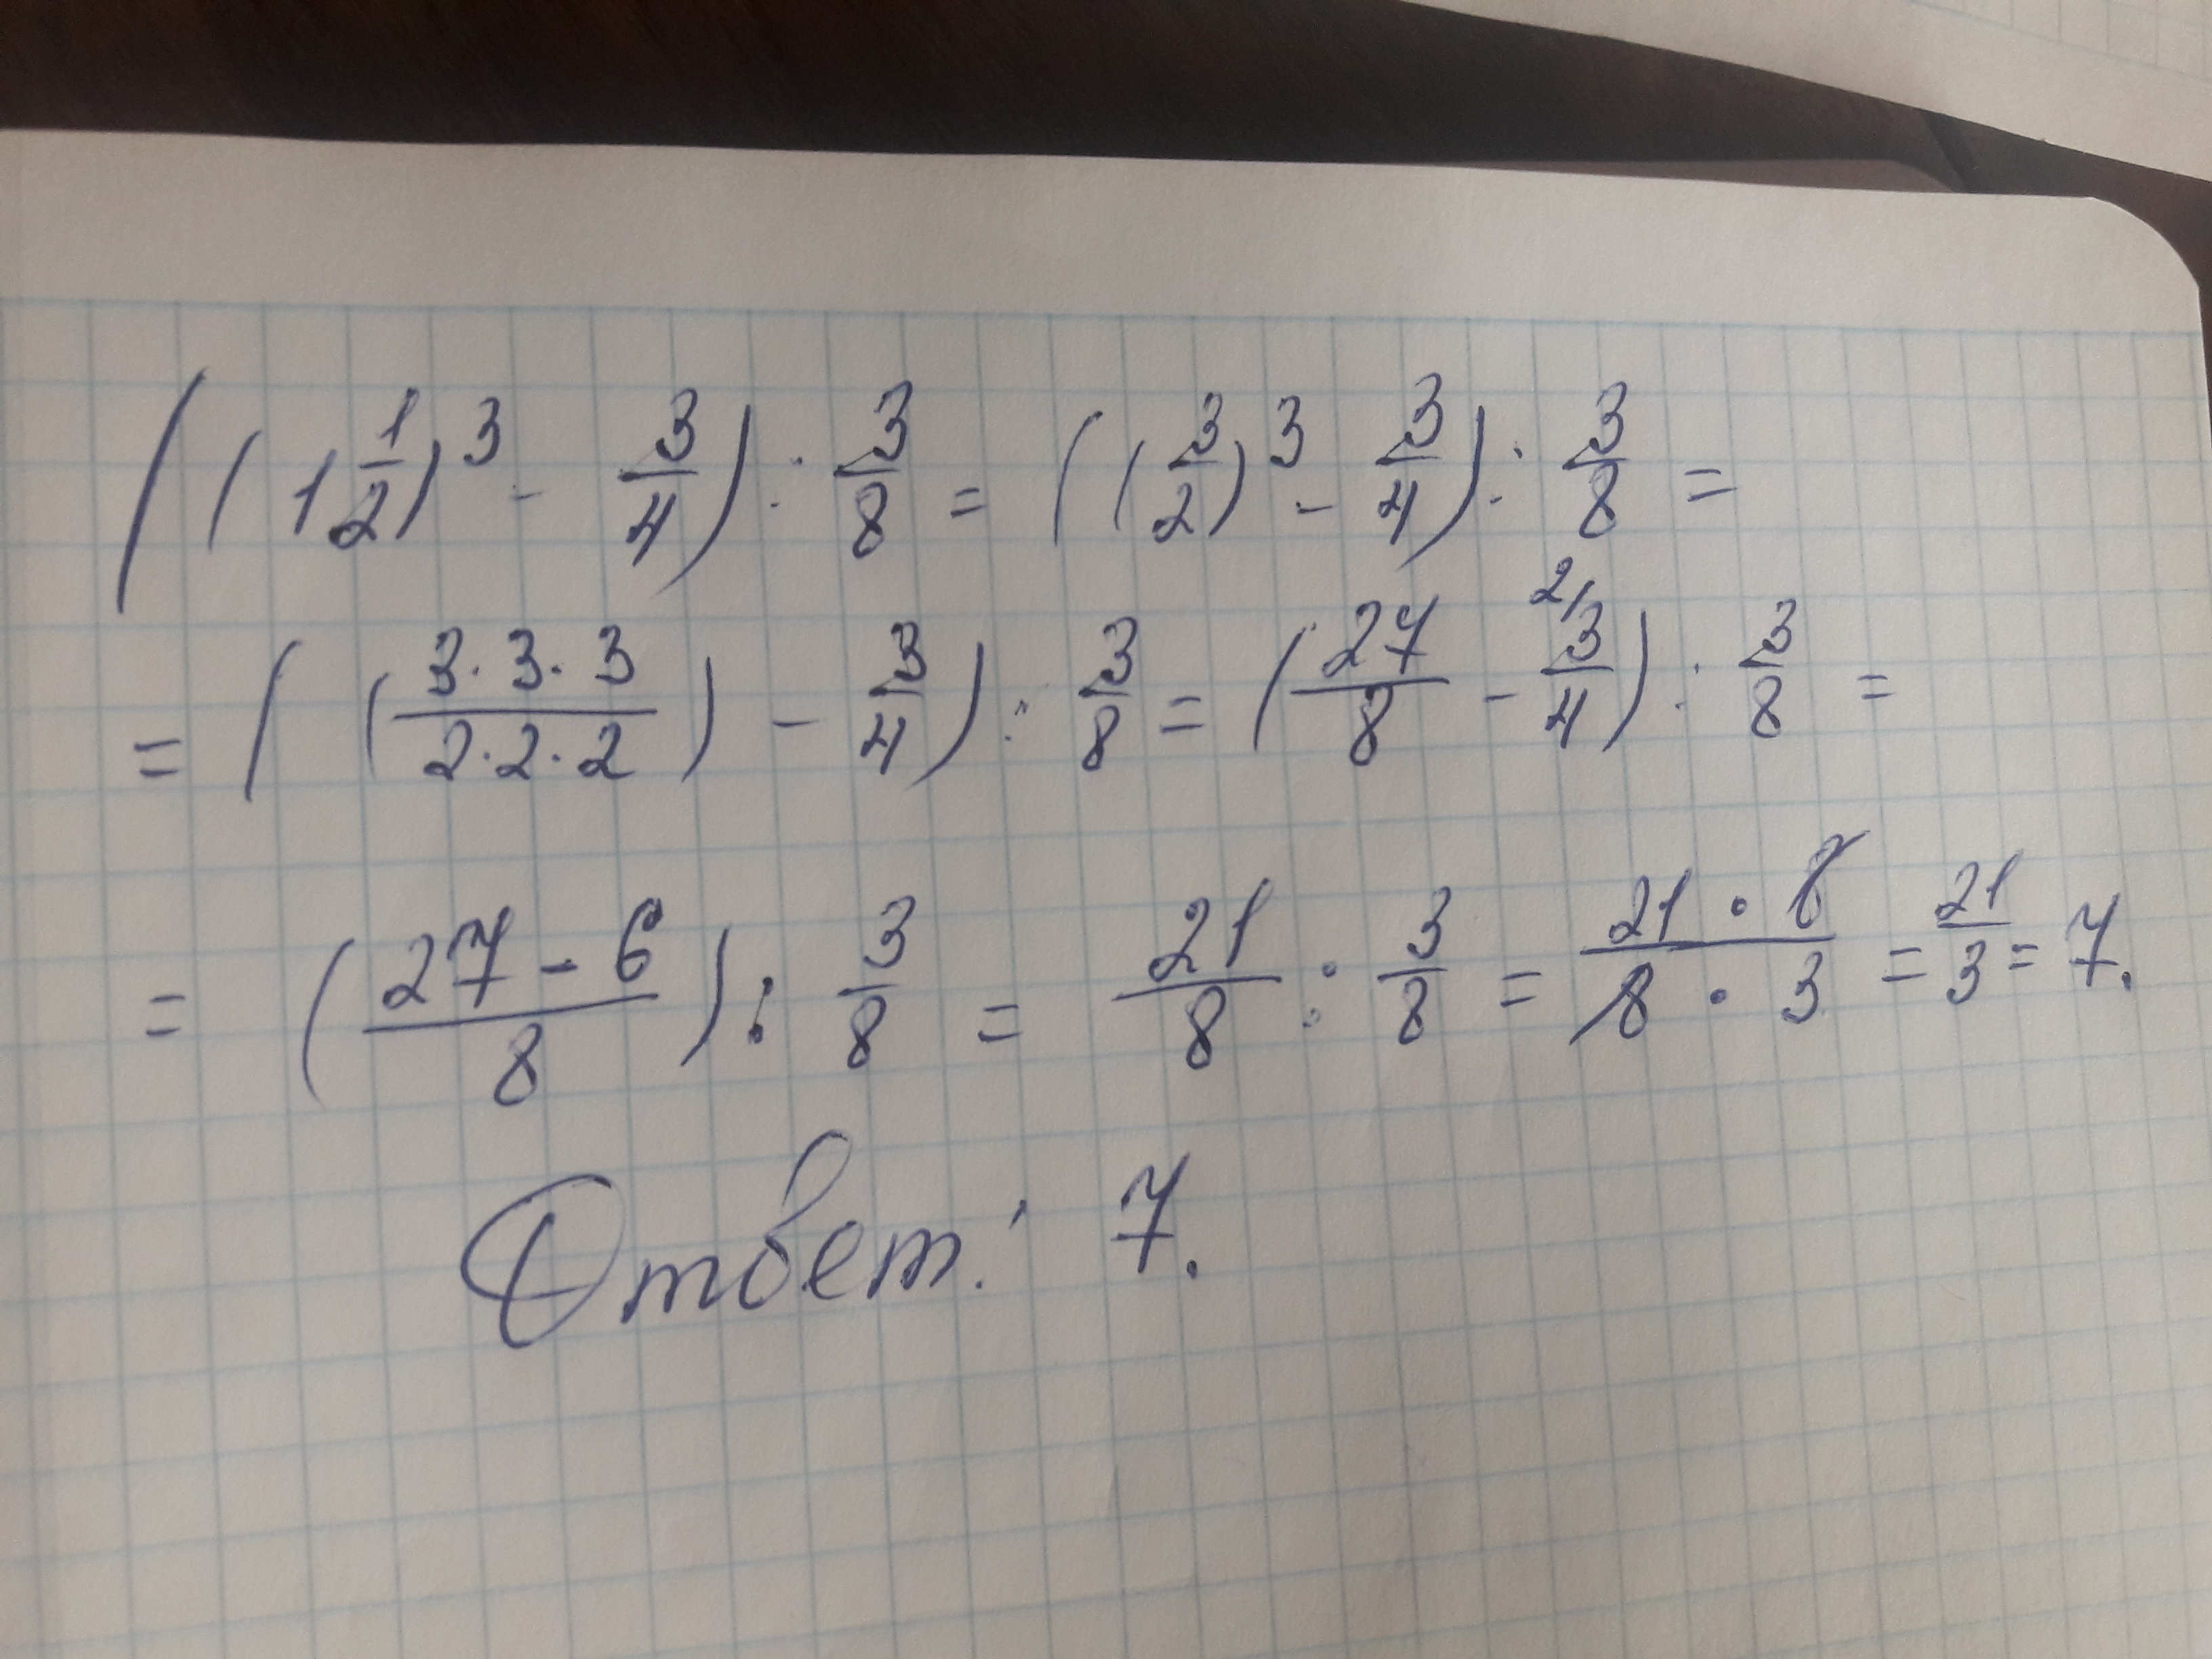 ((1 1/2)³ - 3/4) : 3/8 = ((3/2)³ - 3/4) : 3/8 =
= ((3·3·3/2·2·2) - 3/4) : 3/8 = (27/8 - ²⁾3/4) : 3/8 =
= (27-6/8) : 3/8 = 21/8 : 3/8 = 21·8/8·3 = 21/3 = 7.
Ответ: 7.